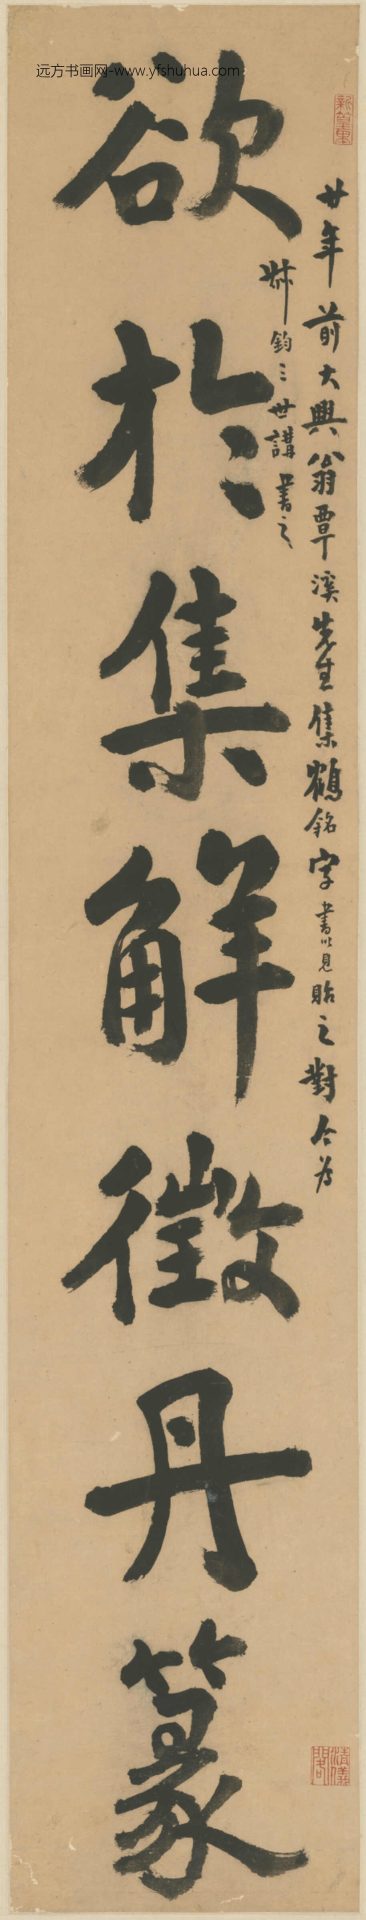 远方书画网-www.yfshuhua.com
欲於集解徵丹篆
廿年前大興翁覃溪先生集鶴銘字書以見貽之對今為
鈞三世講書之
清儀閣